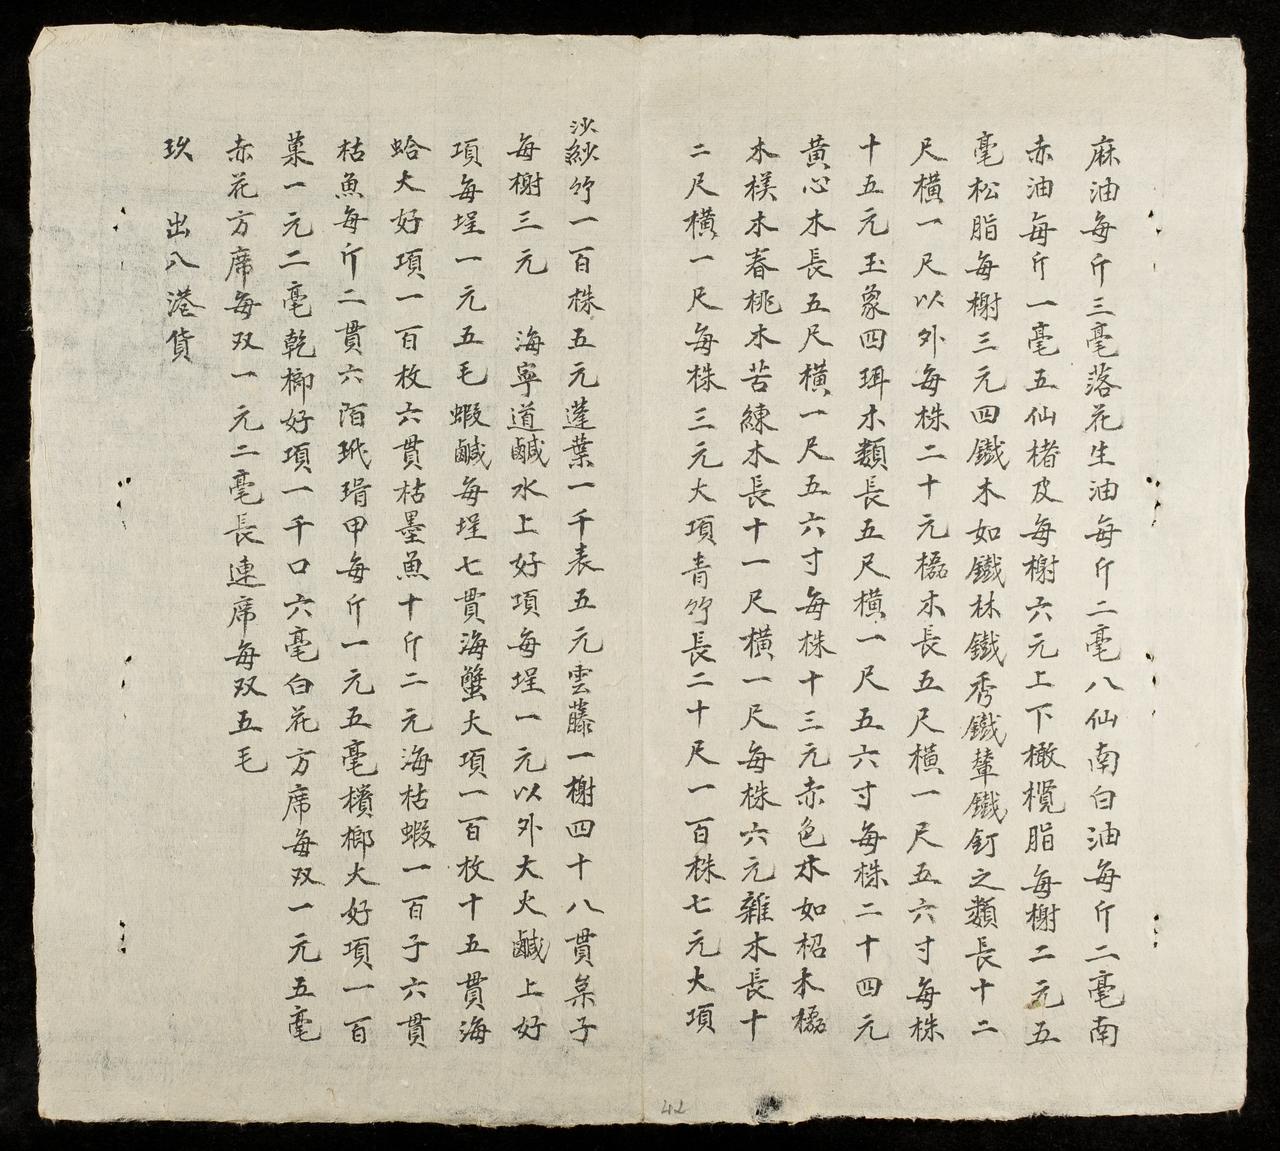 麻油每斤三毫落花生油每斤二毫八仙南白油每斤二毫南
赤油每斤一毫五仙楮皮每榭六元上下橄欖脂每榭二元五
毫松脂每榭三元四鐵木如鐵林鐵秀鐵輦鐵釘之類長十二
尺橫一尺以外每株二十元橋木長五尺橫一尺五六寸每株
十五元玉象四珥木類長五尺橫一尺五六寸每株二十四元
黃心木長五尺橫一尺五六寸每株十三元赤色木如柖木橋
木樸木春桃木苦練木長十一尺橫一尺每株六元雜木長十
二尺橫一尺每株三元大項青竹長二十尺一百株七元大項
沙紗竹一百株五元蓬葉一千表五元雲藤一榭四十八貫菓子
每榭三元 海寧道鹹水上好項每埕一元以外大火鹹上好
項每埕一元五毛蝦鹹每埕七貫海蟹大項一百枚十五貫海
蛤大好項一百枚六貫枯墨魚十斤二元海枯蝦一百子六貫
枯魚每斤二貫六陌玳瑁甲每斤一元五毫檳榔大好項一百
菓一元二毫乾榔好項一千口六毫白花方席每双一元五毫
赤花方席每双一元二毫長連席每双五毛
玖 出入港貨
42